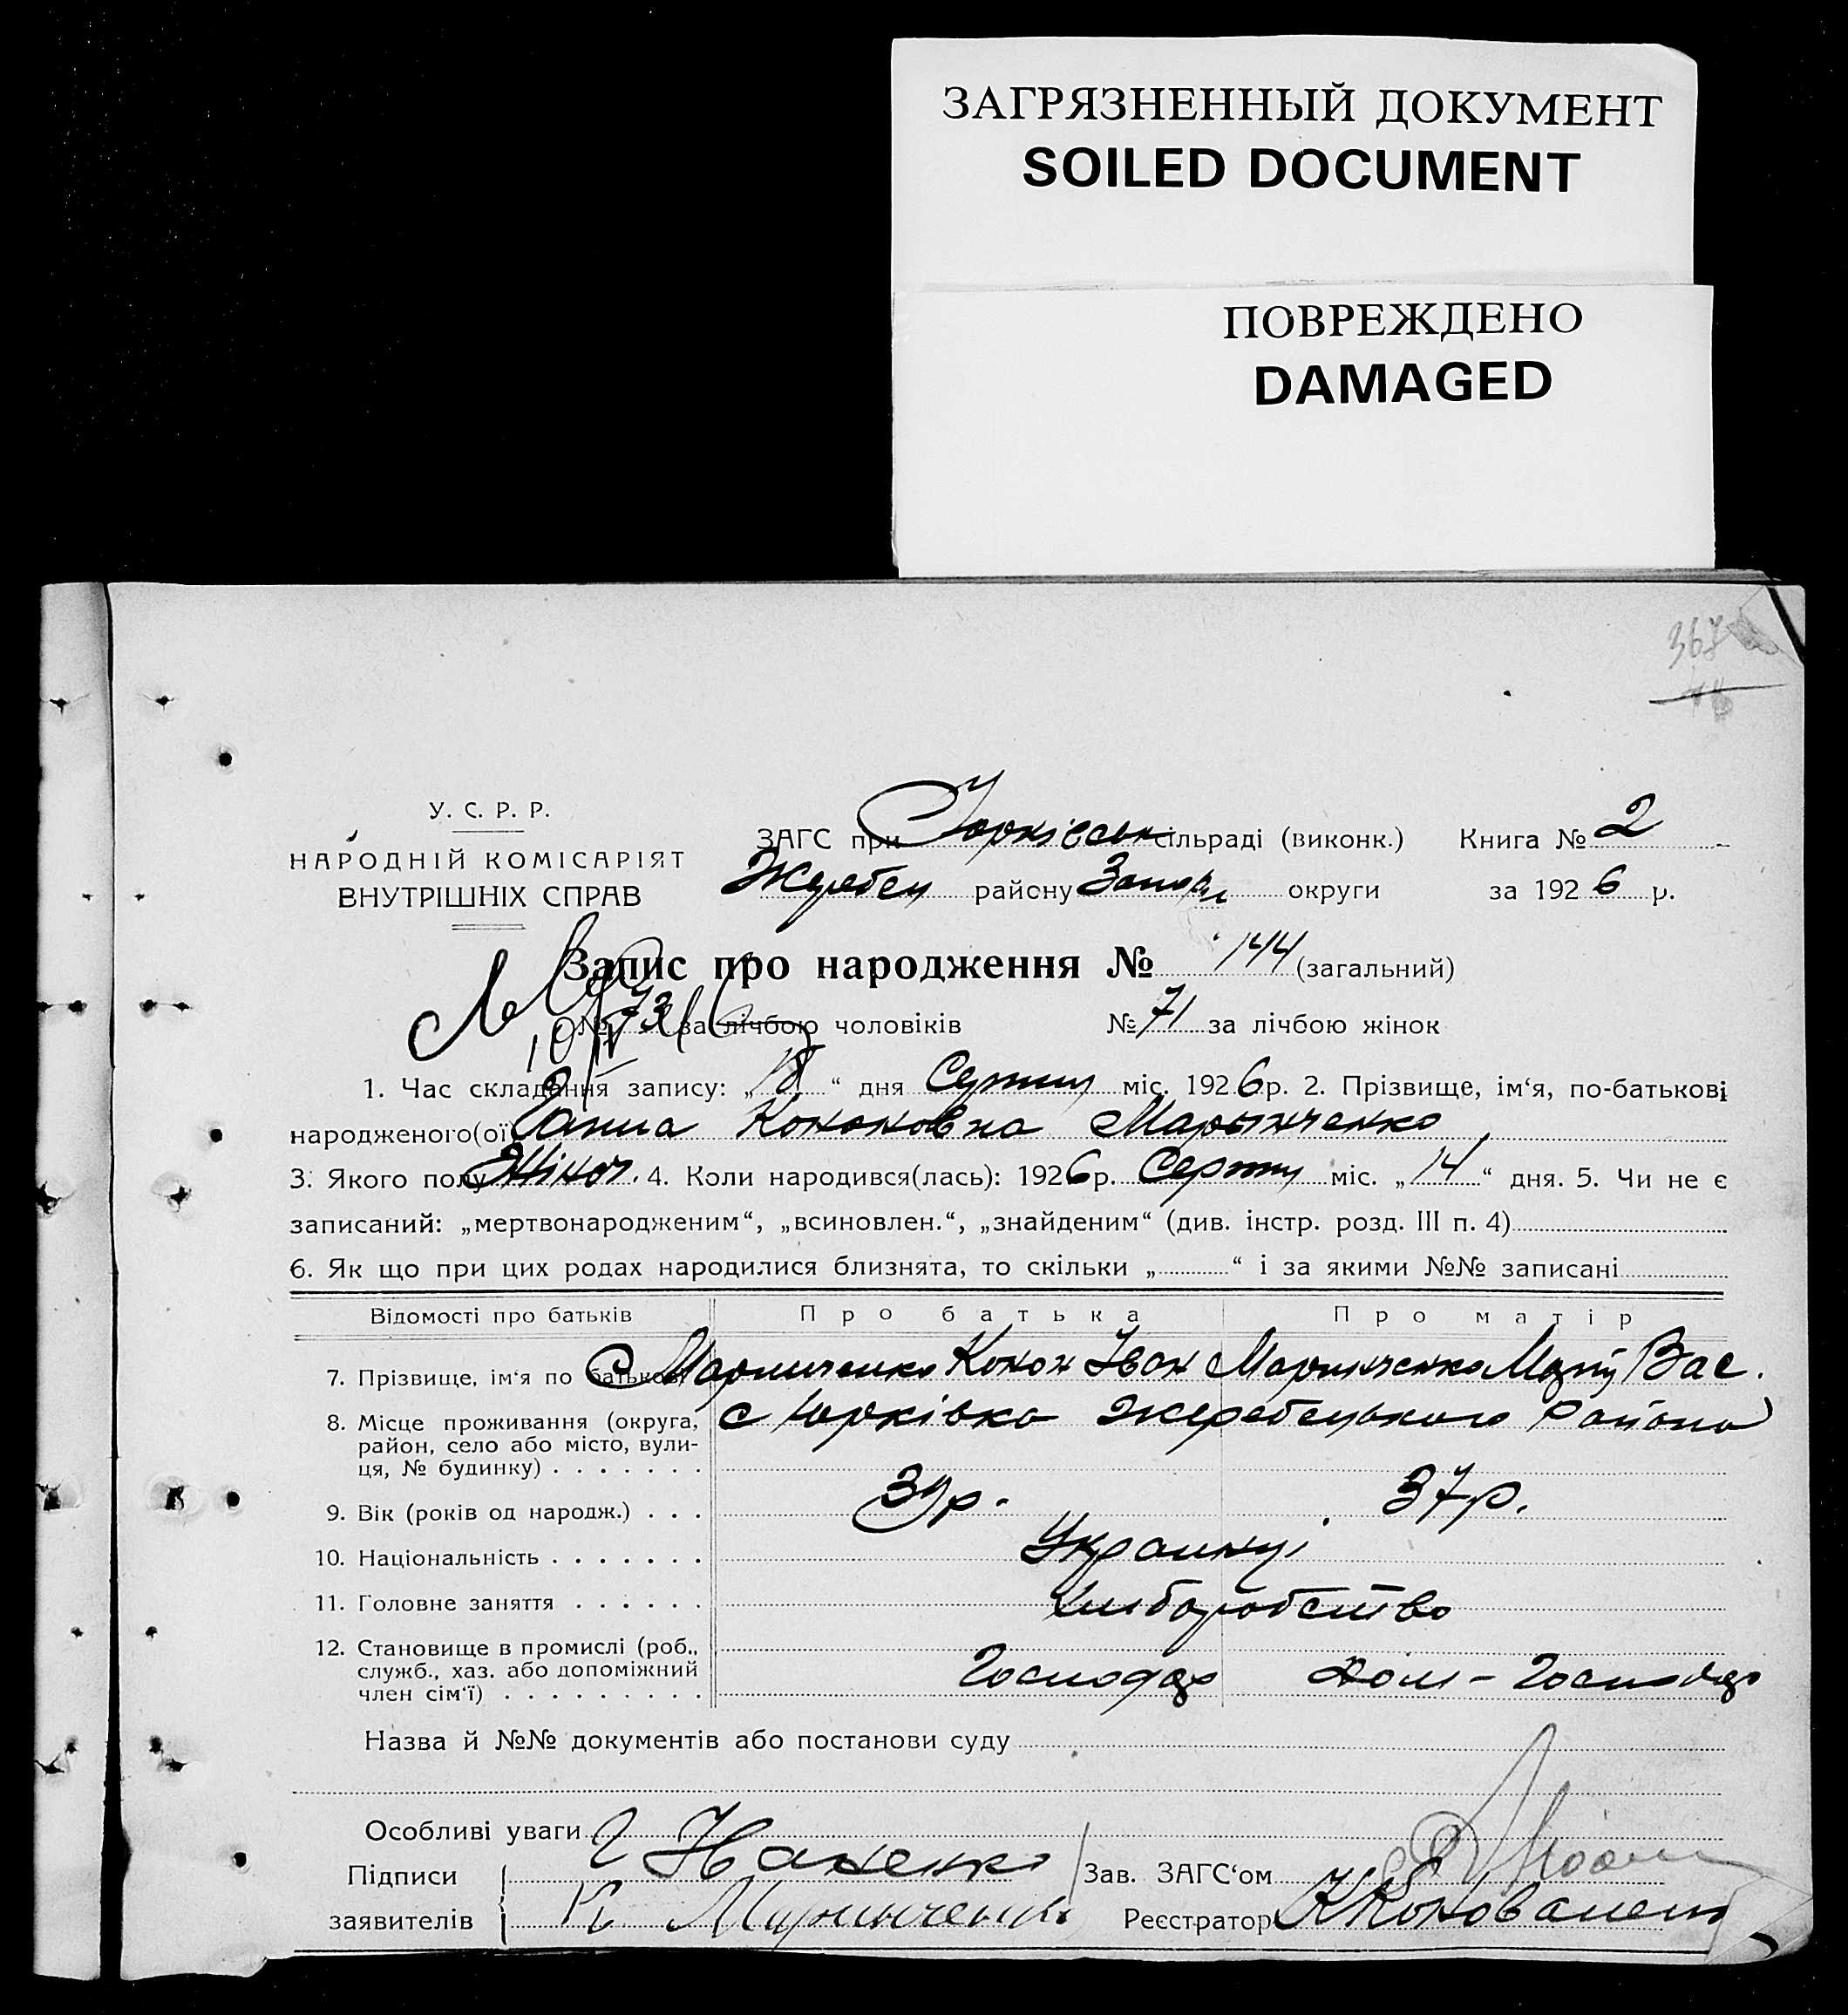 ЗАГРЯЗНЕННЫЙ ДОКУМЕНТ
SOILED DOCUMENT
ПОВРЕЖДЕНО
DAMAGED
367
У. С. Р. Р.
НАРОДНІЙ КОМІСАРІЯТ
ВНУТРІШНІХ СПРАВ
ЗАГС при Юрківськ сільраді (виконк.) Книга № 2
Жеребец району Запор округи за 1926 р.
Запис про народження № 144 (загальний)
№ 73 за лічбою чоловіків № 71 за лічбою жінок
1. Час складання запису: „18“ дня Серпня міс. 1926 р. 2. Прізвище, ім‘я, по-батькові
народженого(ої) Ганна Кононовна Марынченко
3. Якого полу Жіноч. 4. Коли народився(лась): 1926 р. Серпня міс. „14“ дня. 5. Чи не є
записаний: „мертвонародженим“, „всиновлен.“, „знайденим“ (див. інстр. розд. III п. 4)
6. Як що при цих родах народилися близнята, то скільки „ “ і за якими №№ записані
Відомості про батьків Про батька Про матір
7. Прізвище, ім‘я по батькові Маринченко Конон Іван Маринченко Мария Вас.
8. Місце проживання (округа, с Юрківка Жеребецького Района
район, село або місто, вули-
ця, № будинку)
9. Вік (років од народж.) 39 р. 37 р.
10. Національність Украинці
11. Головне заняття Хлиборобство
12. Становище в промислі (роб.,
служб., хаз. або допоміжний Господар Дом-Господар
член сім‘ї)
Назва й №№ документів або постанови суду
Особливі уваги
Підписи Зав. ЗАГС‘ом
заявителів К Маринченко Реєстратор К Коновалец